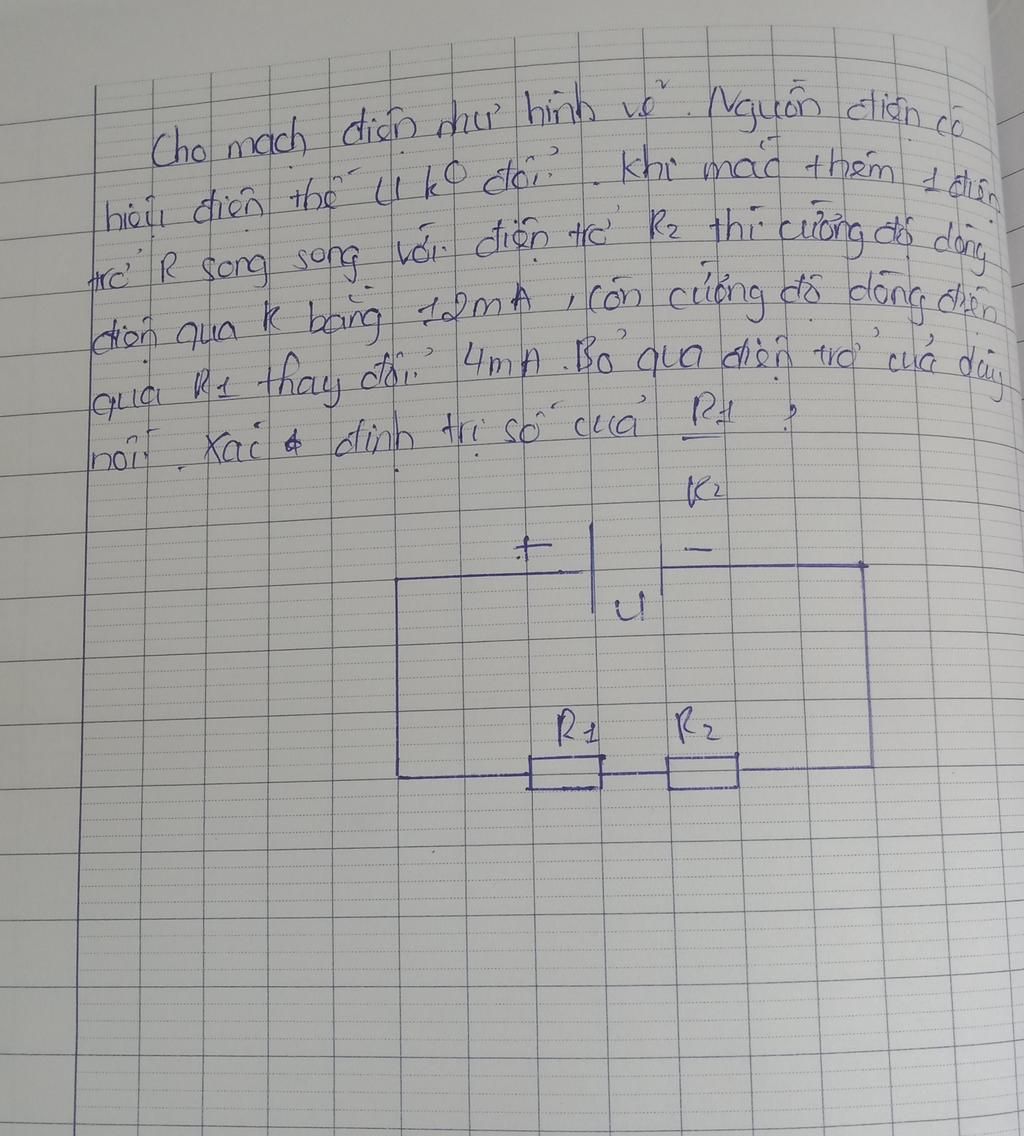 Cho mạch điện như hình vẽ. Nguồn điện có
hiệu điện thế U k⁰ đổi. Khi mắc thêm 1 điện
trở R song song với điện trở R2 thì cường độ dòng
điện qua R bằng 12mA, còn cường độ dòng điện
qua R1 thay đổi 4mA. Bỏ qua điện trở của dây
nối. Xác định trị số của R1 ?
R2
+ −
U
R1 R2